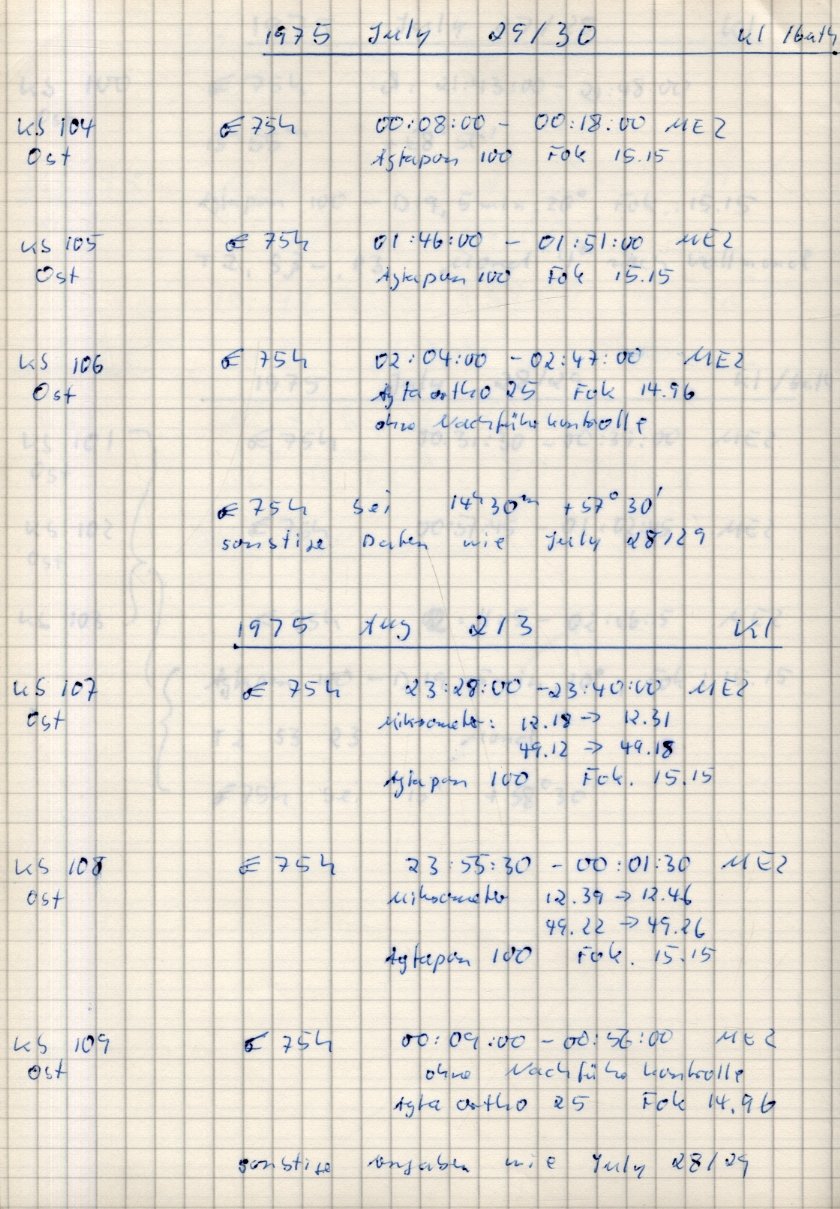 1975 July 29/30 Kl
KS 104 € 75h 00:08:00 - 00:18:00 MEZ
Ost Agfapan 100 Fok 15.15
KS 105 € 75h 01:46:00 - 01:51:00 MEZ
Ost Agfapan 100 Fok 15.15
KS 106 € 75h 02:04:00 - 02:47:00 MEZ
Ost Agfa ortho 25 Fok 14.96
ohne Nachführkontrolle
€ 75h bei 14h30m +57°30'
sonstige Daten wie July 28/29
1975 Aug 2/3 Kl
KS 107 € 75h 23:28:00 - 23:40:00 MEZ
Ost Mikrometer: 12.18 → 12.31
49.12 → 49.18
Agfapan 100 Fok. 15.15
KS 108 € 75h 23:55:30 - 00:01:30 MEZ
Ost Mikrometer 12.39 → 12.46
49.22 → 49.26
Agfapan 100 Fok. 15.15
KS 109 € 75h 00:09:00 - 00:56:00 MEZ
Ost ohne Nachführkontrolle
Agfa ortho 25 Fok 14.96
sonstige Angaben wie July 28/29